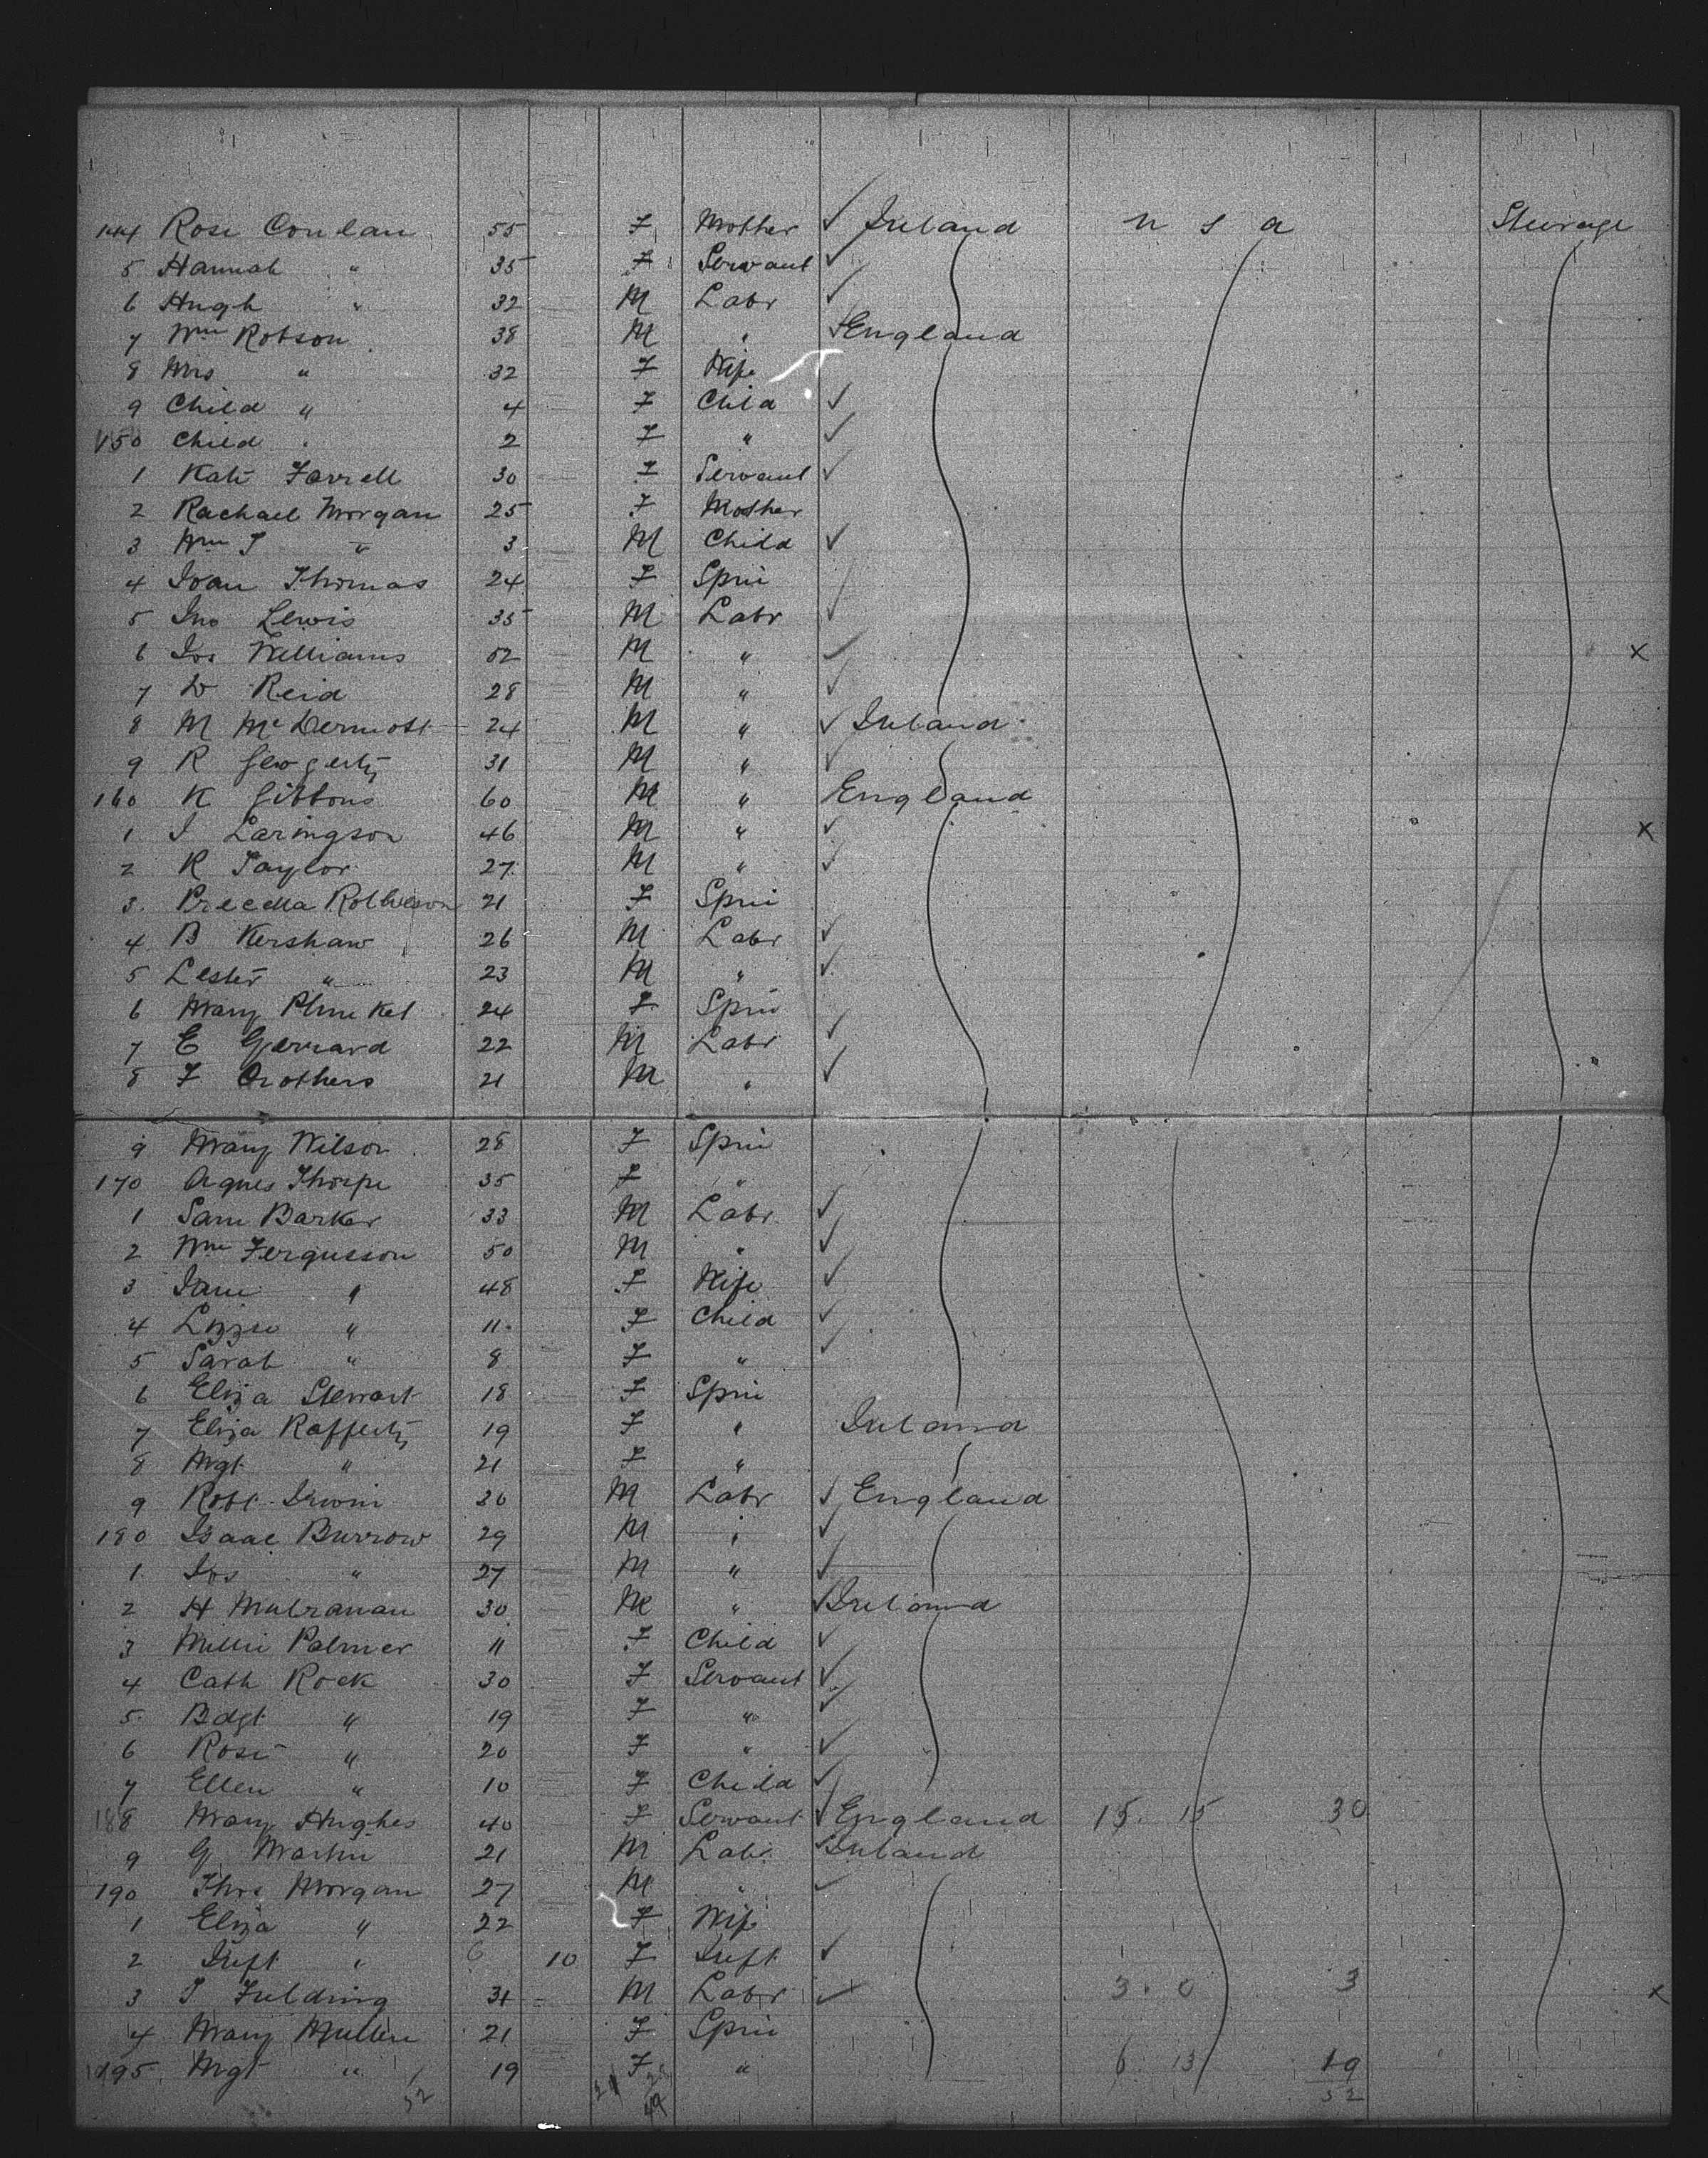 144 Rose Conlan 55 F Mother ✓ Ireland U S A Steerage
5 Hannah " 35 F Servant ✓
6 Hugh " 32 M Labr ✓
7 Wm Robson 38 M " ✓ England
8 Mrs " 32 F Wife
9 Child " 4 F Child ✓
150 Child " 2 F " ✓
1 Kate Farrell 30 F Servant ✓
2 Rachael Morgan 25 F Mother
3 Wm J " 3 M Child ✓
4 Joan Thomas 24 F Spin
5 Jno Lewis 35 M Labr ✓
6 Jos Williams 52 M " ✓ x
7 D Reid 28 M " ✓
8 M McDermott 24 M " ✓ Ireland
9 R 31 M " ✓
160 K Gibbons 60 M " England
1 J Laringson 46 M " ✓ x
2 R Taylor 27 M " ✓
3 21 F Spin
4 B Kershaw 26 M Labr ✓
5 Lester " 23 M " ✓
6 Mary Plunket 24 F Spin
7 E Gerrard 22 M Labr ✓
8 F Crothers 21 M " ✓
9 Mary Wilson 28 F Spin
170 Agnes Thorpe 35 F "
1 Sam Barker 33 M Labr ✓
2 Wm Fergusson 50 M " ✓
3 Jane " 48 F Wife ✓
4 Lizzie " 11 F Child ✓
5 Sarah " 8 F " ✓
6 Eliza Stewart 18 F Spin
7 Eliza Rafferty 19 F " Ireland
8 Mgt " 21 F "
9 Robt Irwin 30 M Labr ✓ England
180 Isaac Burrow 29 M " ✓
1 Jos " 27 M " ✓
2 H Mulranan 30 M " ✓ Ireland
3 Millie Palmer 11 F Child ✓
4 Cath Rock 30 F Servant ✓
5 Bdgt " 19 F " ✓
6 Rose " 20 F " ✓
7 Ellen " 10 F Child ✓
188 Mary Hughes 40 F Servant ✓ England 15. 15 30
9 G Martin 21 M Labr ✓ Ireland
190 Thos Morgan 27 M " ✓
1 Eliza " 22 F Wife
2 Inft " 10 F Inft ✓
3 J Fielding 31 M Labr ✓ 3. 0 3 x
4 Mary Mullen 21 F Spin
195 Mgt " 19 F " 6 13 19
52 49 52